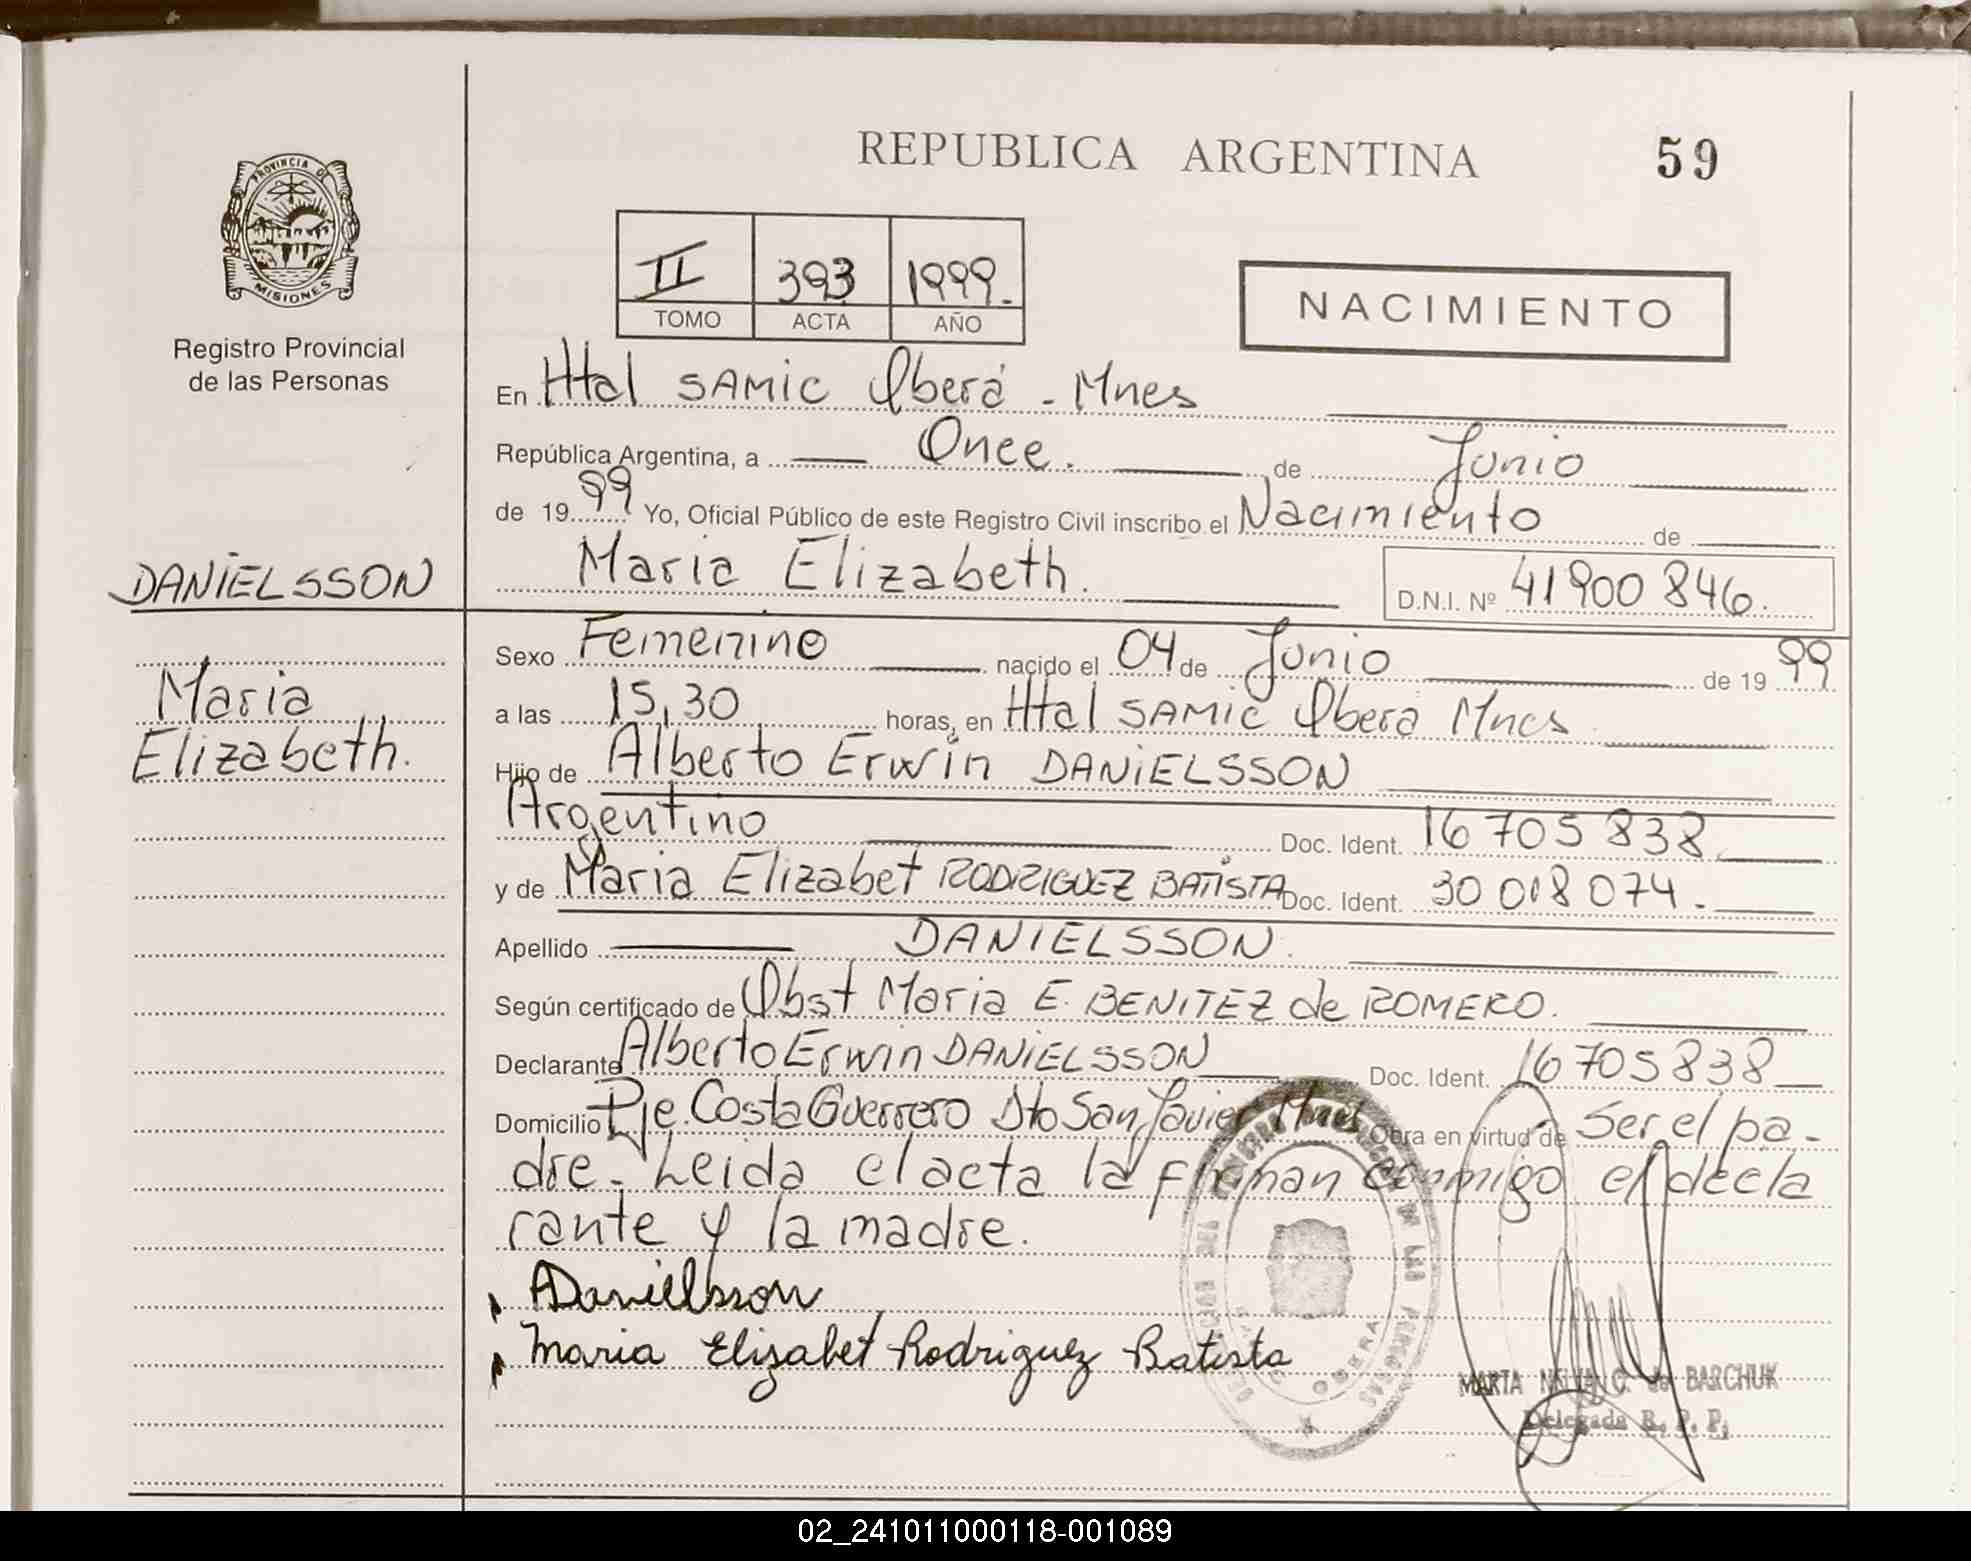 REPUBLICA ARGENTINA 59
PROVINCIA DE
MISIONES
Registro Provincial
de las Personas
II 393 1999.
TOMO ACTA AÑO
NACIMIENTO
En Htal SAMIC Oberá - Mnes
República Argentina, a Once. de Junio
de 1999 Yo, Oficial Público de este Registro Civil inscribo el Nacimiento de
Maria Elizabeth. D.N.I. Nº 41900 846.
DANIELSSON
Maria
Elizabeth.
Sexo Femenino nacido el 04 de Junio de 1999
a las 15,30 horas, en Htal SAMIC Oberá Mnes
Hijo de Alberto Erwin DANIELSSON
Argentino Doc. Ident. 16 705 838
y de Maria Elizabet RODRIGUEZ BATISTA Doc. Ident. 30 018 074.
Apellido DANIELSSON.
Según certificado de Obst Maria E. BENITEZ de ROMERO.
Declarante Alberto Erwin DANIELSSON Doc. Ident. 16 705 838
Domicilio Pje. Costa Guerrero Dto San Javier Mnes Obra en virtud de Ser el pa-
dre. Leida el acta la firman conmigo el decla
rante y la madre.
ADanielsson
Maria Elizabet Rodriguez Batista
OBERA
MARTA C. de BARCHUK
Delegada R. P. P.
02_241011000118-001089